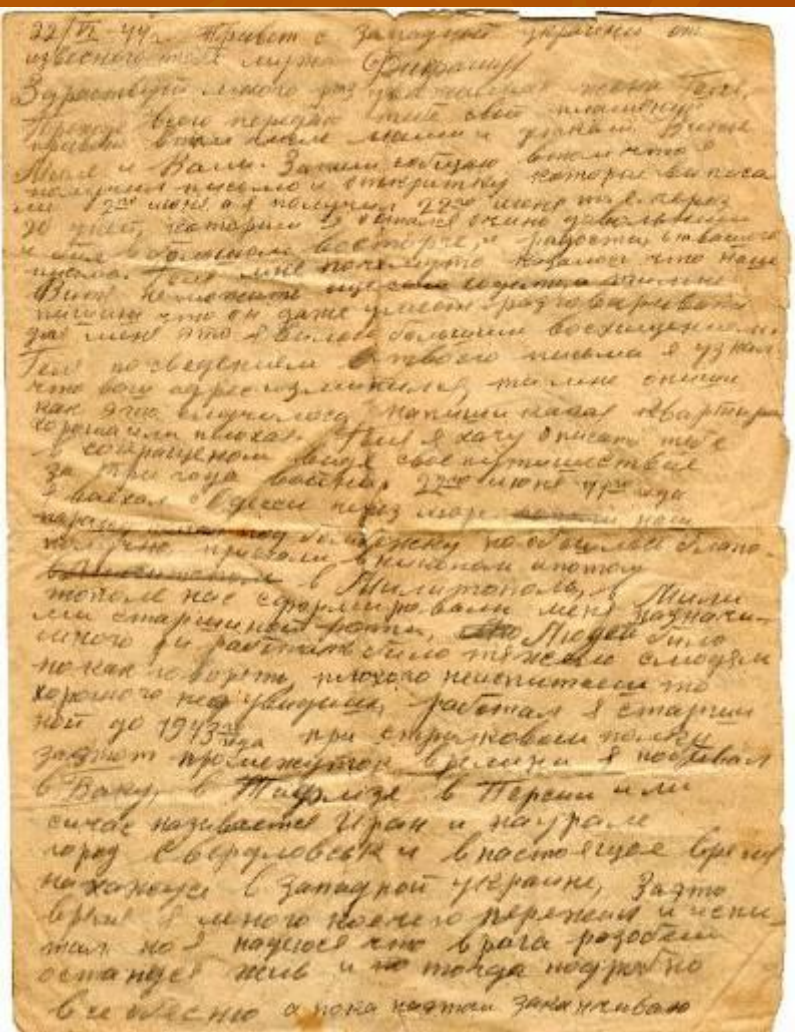 22/VI-44г. Привет с западной украены от
известного тебе мужа
Здраствуй много раз уважаемая жена Геля,
передаю тебе свой пламеный
привет
и Вали. сообщаю в том что я
получил письмо и открытку которые вы писа
ли 2го июня а я получил 22го июня т.е. через
20 дней, которым я остался очень довольным
и был в большом восторге, и радости, с вашого
письма. Геля мне почемуто казалось что наш
Витя неможет
пишиш что он даже умеет разговаривать
для меня это я было большим восхищением.
Геля по сведениям с твоего письма я узнал
что ваш адрес изменился, ты мне опиши
как это случилось, напиши какая квартира
хорошая или плохая. Геля я хочу описать тебе
в сокращеном виде свое путишествие
за три года войны, 22го июня 41го года
я выехал с Одессы через море наш
под бомбежку но обошлось благо-
получно приехали в николаев а потом
в Милитополь, в Мили
тополе нас сформировали меня назначи-
ли старшиной роты, Людей было
много и работать было тяжело с людьми
но как говорять плохого неиспитаеш то
хорошого неувидиш, работал я старши
ной до 1943го года при стрелковом полку
заэтот промежуток времини я побывал
в Баку, в Тифлизе в Персии или
сичас называется Иран и наурале
город Свердловськ и внастоящое время
нахожуся в западной украине, Заэто
время я много коечего пережил и испи-
тал но я надеюся что врага розобем
остануся жив и то тогда подробно
все обесню а пока наэтом заканчиваю